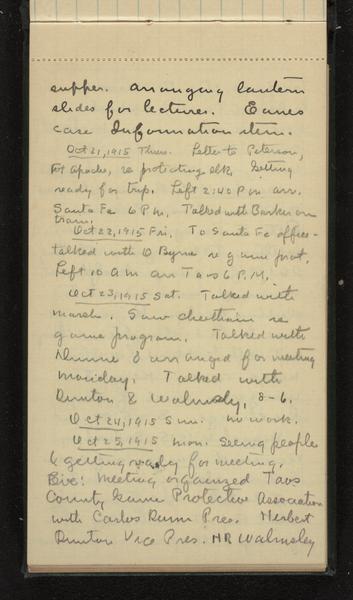 supper. Arranging lantern
slides for lectures. Eames
case Information item.
Oct 21, 1915 Thurs. Letter to Peterson,
Ft Apache, re protecting elk. Getting
ready for trip. Left 2:40 P m arr.
Santa Fe 6 P M. Talked with Barker on
train.
Oct 22, 1915 Fri. To Santa Fe office -
talked with O Byrne re game prot.
Left 10 A m arr Taos 6 P.M.
Oct 23, 1915 Sat. Talked with
marsh. Saw cheetham re
game program. Talked with
& arranged for meeting
monday. Talked with
Dunton & Walmsley, 8-6.
Oct 24, 1915 Sun. no work.
Oct 25, 1915 mon. Seeing people
& getting ready for meeting.
Eve: Meeting organized Taos
County Game Protective Association
with Carlos Dunn Pres. Herbert
Dunton Vice Pres. HR Walmsley